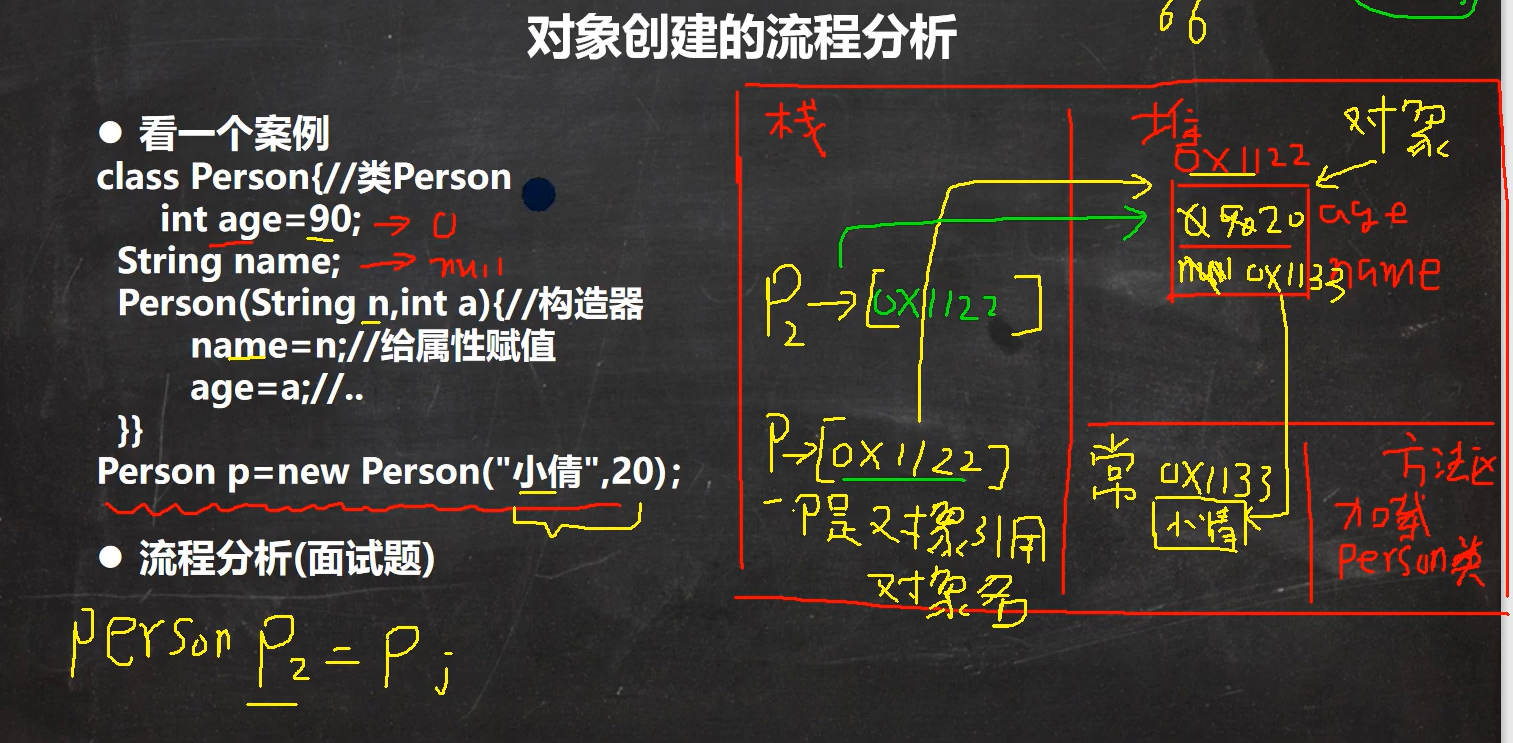 对象创建的流程分析
66
● 看一个案例
class Person{//类Person
int age=90; → 0
String name; → null
Person(String n,int a){//构造器
name=n;//给属性赋值
age=a;//..
}}
Person p=new Person("小倩",20);
● 流程分析(面试题)
person p2 = p;
栈
p2→[0x1122]
p→[0x1122]
p是对象引用
对象名
堆
对象
0x1122
0 90 20 age
null 0x1133 name
常
0x1133
小倩
方法区
加载
person类